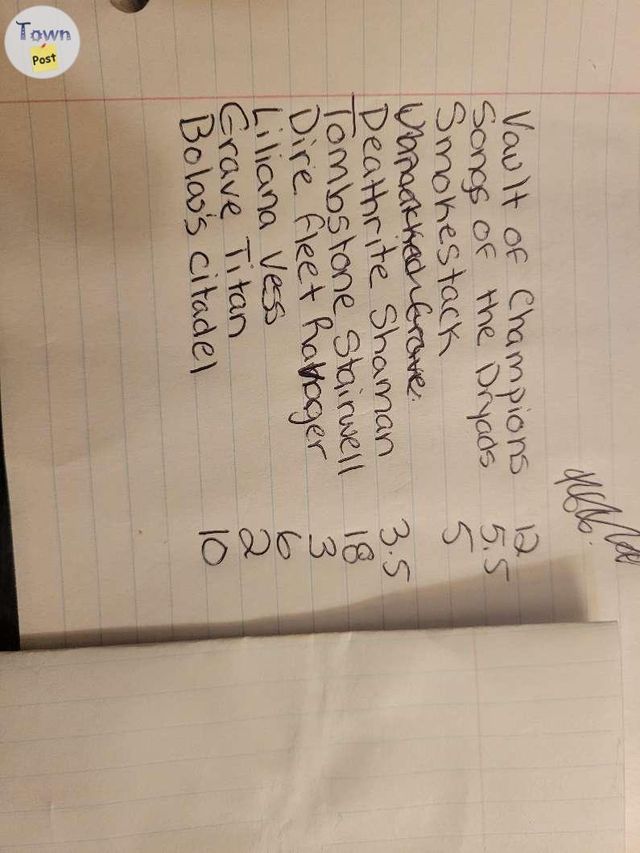 Town
Post
Vault of Champions 12
Songs of the Dryads 5.5
Smokestack 5
Unmarked Grave.
Deathrite Shaman 3.5
Tombstone Stairwell 18
Dire fleet Ravager 3
Liliana Vess 6
Grave Titan 2
Bolas's citadel 10